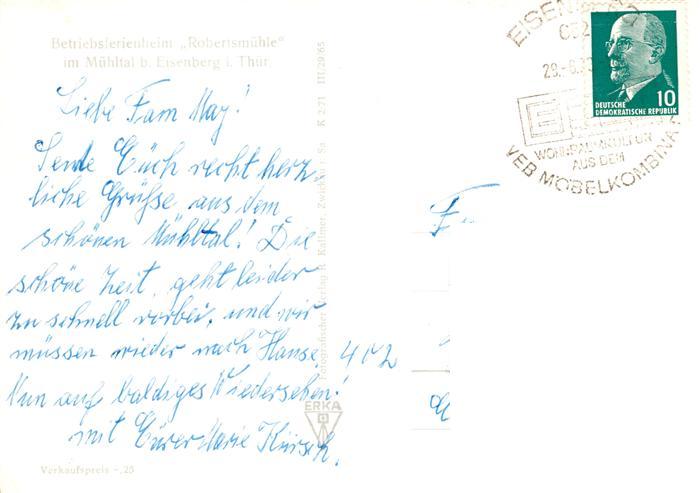 Betriebsferienheim „Robertsmühle"
im Mühltal b. Eisenberg i. Thür.
Liebe Fam May!
Sende Euch recht herz-
liche Grüße aus dem
schönen Mühltal! Die
schöne Zeit, geht leider
zu schnell vorbei, und wir
müssen wieder nach Hause.
Nun auf baldiges Wiedersehen!
mit Eurer Marie
Verkaufspreis -,25
Fotografischer Verlag R. Kallmer, Zwickau i. Sa. K 2/71 III/29/65
ERKA
402
EISENBERG
29.-6.70
WOHNRAUMKULTUR
AUS DEM
VEB MÖBELKOMBINAT
10
DEUTSCHE
DEMOKRATISCHE REPUBLIK